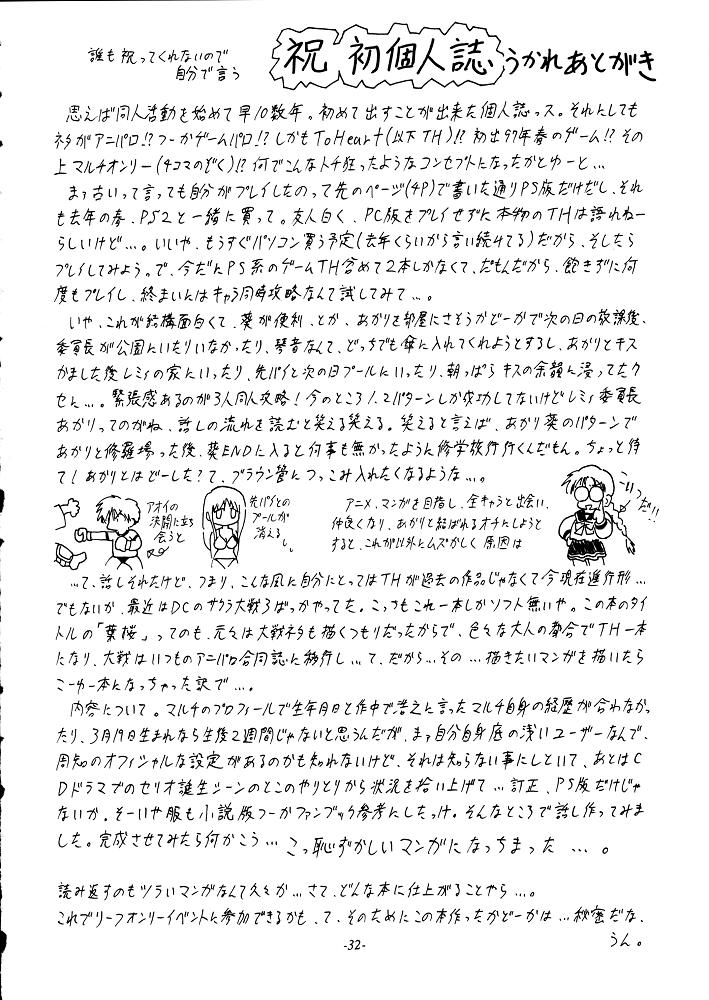 誰も祝ってくれないので
自分で言う
祝 初個人誌 うかれあとがき
思えば同人活動を始めて早10数年。初めて出すことが出来た個人誌っス。それにしても
ネタがアニパロ!?つーかゲームパロ!?しかもToHeart(以下TH)!?初出97年春のゲーム!?その
上マルチオンリー(4コマのぞく)!?何でこんなトチ狂ったようなコンセプトになったかとゆーと…
まァ古いって言っても自分がプレイしたのって先のページ(4P)で書いた通りPS版だけだし、それ
も去年の春、PS2と一緒に買って。友人曰く、PC版をプレイせずに本物のTHは語れねー
らしいけど…。いいや、もうすぐパソコン買う予定(去年くらいから言い続けてる)だから、そしたら
プレイしてみよう。で、今だにPS系のゲームTH含めて2本しかなくて、だもんだから、飽きずに何
度もプレイし、終まいにはキャラ同時攻略なんて試してみて…。
いや、これが結構面白くて、葵が便利、とか、あかりを部屋にさそうかどーかで次の日の放課後、
委員長が公園にいたりいなかったり、琴音なんて、どっちでも傘に入れてくれようとするし、あかりとキス
かました後レミィの家にいったり、先パイと次の日プールにいったり、朝っぱらキスの余韻に浸ってたク
セに…。緊張感あるのが3人同人攻略!今のところ1、2パターンしか成功してないけどレミィ委員長
あかりってのがね、話しの流れを読むと笑える笑える。笑えると言えば、あかり葵のパターンで
あかりと修羅場った後、葵ENDに入ると何事も無かったように修学旅行行くんだもん。ちょっと待
て!あかりとはどーした?て、ブラウン管につっこみ入れたくなるような…。
アオイの
決闘に立ち
会うと
先パイとの
プールが
消える
し。
アニメ、マンガを目指し、全キャラと出会い、
仲良くなり、あかりと結ばれるオチにしようと
すると、これが以外にムズかしく原因は
コイツだ!!
…て、話しそれたけど、つまり、こんな風に自分にとってはTHが過去の作品じゃなくて今現在進行形…
でもないか、最近はDCのサクラ大戦3ばっかやってた。こっちもこれ一本しかソフト無いや。この本のタイ
トルの「葉桜」ってのも、元々は大戦ネタも描くつもりだったからで、色々な大人の都合でTH一本
になり、大戦はいつものアニパロ合同誌に移行し…て、だから…その…描きたいマンガを描いたら
こーゆー本になっちゃった訳で…。
内容について。マルチのプロフィールで生年月日と作中で浩之に言ったマルチ自身の経歴が合わなか
ったり、3月19日生まれなら生後2週間じゃないと思うんだが、まァ自分自身底の浅いユーザーなんで、
周知のオフィシャルな設定があるのかも知れないけど、それは知らない事にしといて、あとはC
DドラマでのセリオJ誕生シーンのとこのやりとりから状況を拾い上げて…訂正、PS版だけじゃ
ないか。そーいや服も小説版つーかファンブック参考にしたっけ。そんなところで話し作ってみま
した。完成させてみたら何かこう… こっ恥ずかしいマンガになっちまった…。
読み返すのもツラいマンガなんて久々か…さて、どんな本に仕上がることやら…。
これでリーフオンリーイベントに参加できるかも、て、そのためにこの本作ったかどーかは…秘密だな、
うん。
-32-